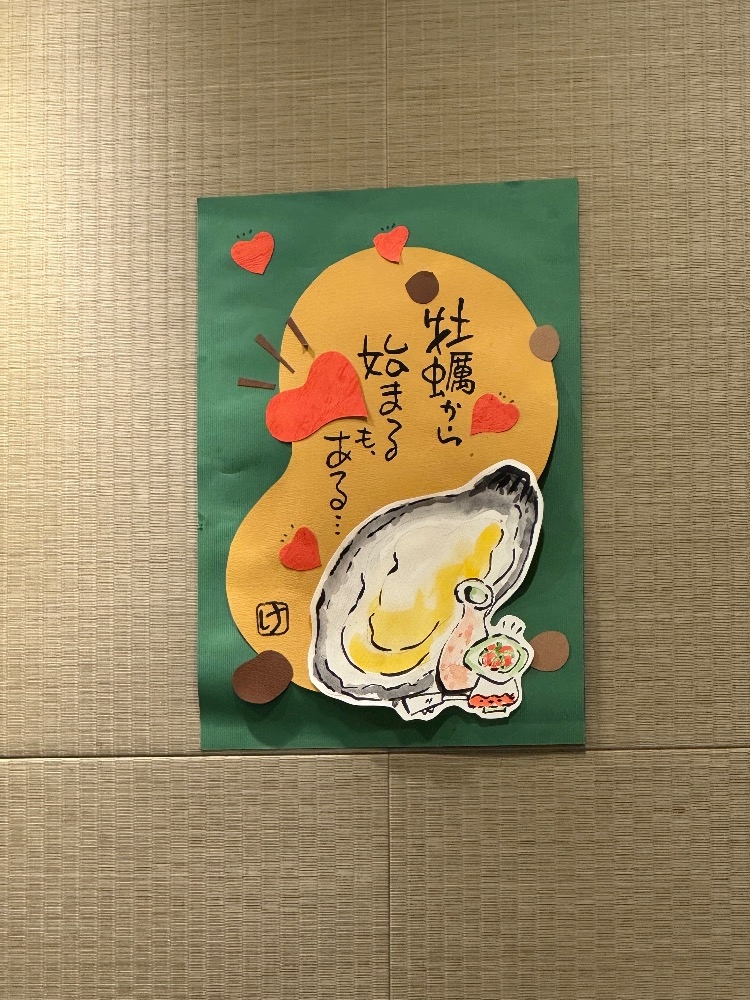 牡蠣から
始まる
も、ある…
け